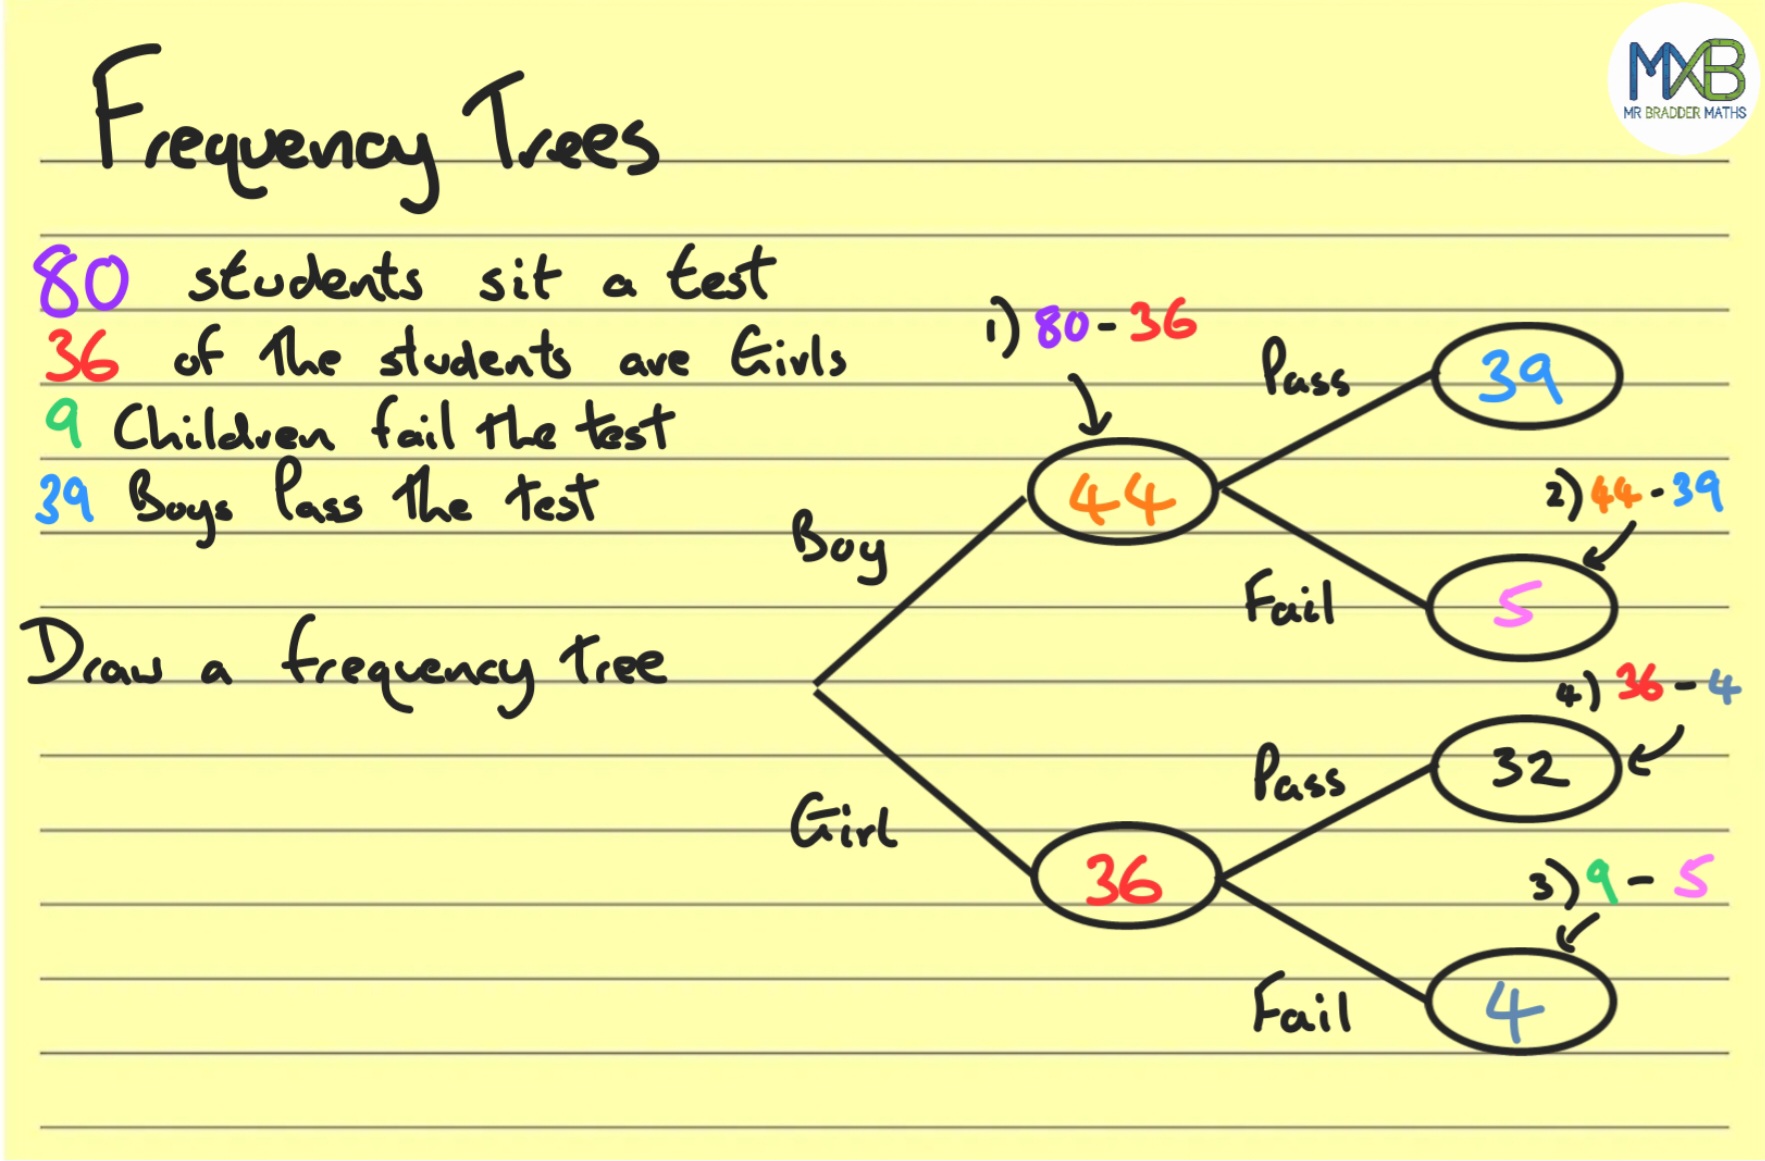 Frequency Trees
MXB
MR BRADDER MATHS
80 students sit a test
36 of the students are Girls
9 Children fail the test
39 Boys Pass the test
Draw a frequency tree
1) 80 - 36
Pass
39
44
2) 44 - 39
Boy
Fail
5
4) 36 - 4
Pass
32
Girl
36
3) 9 - 5
Fail
4